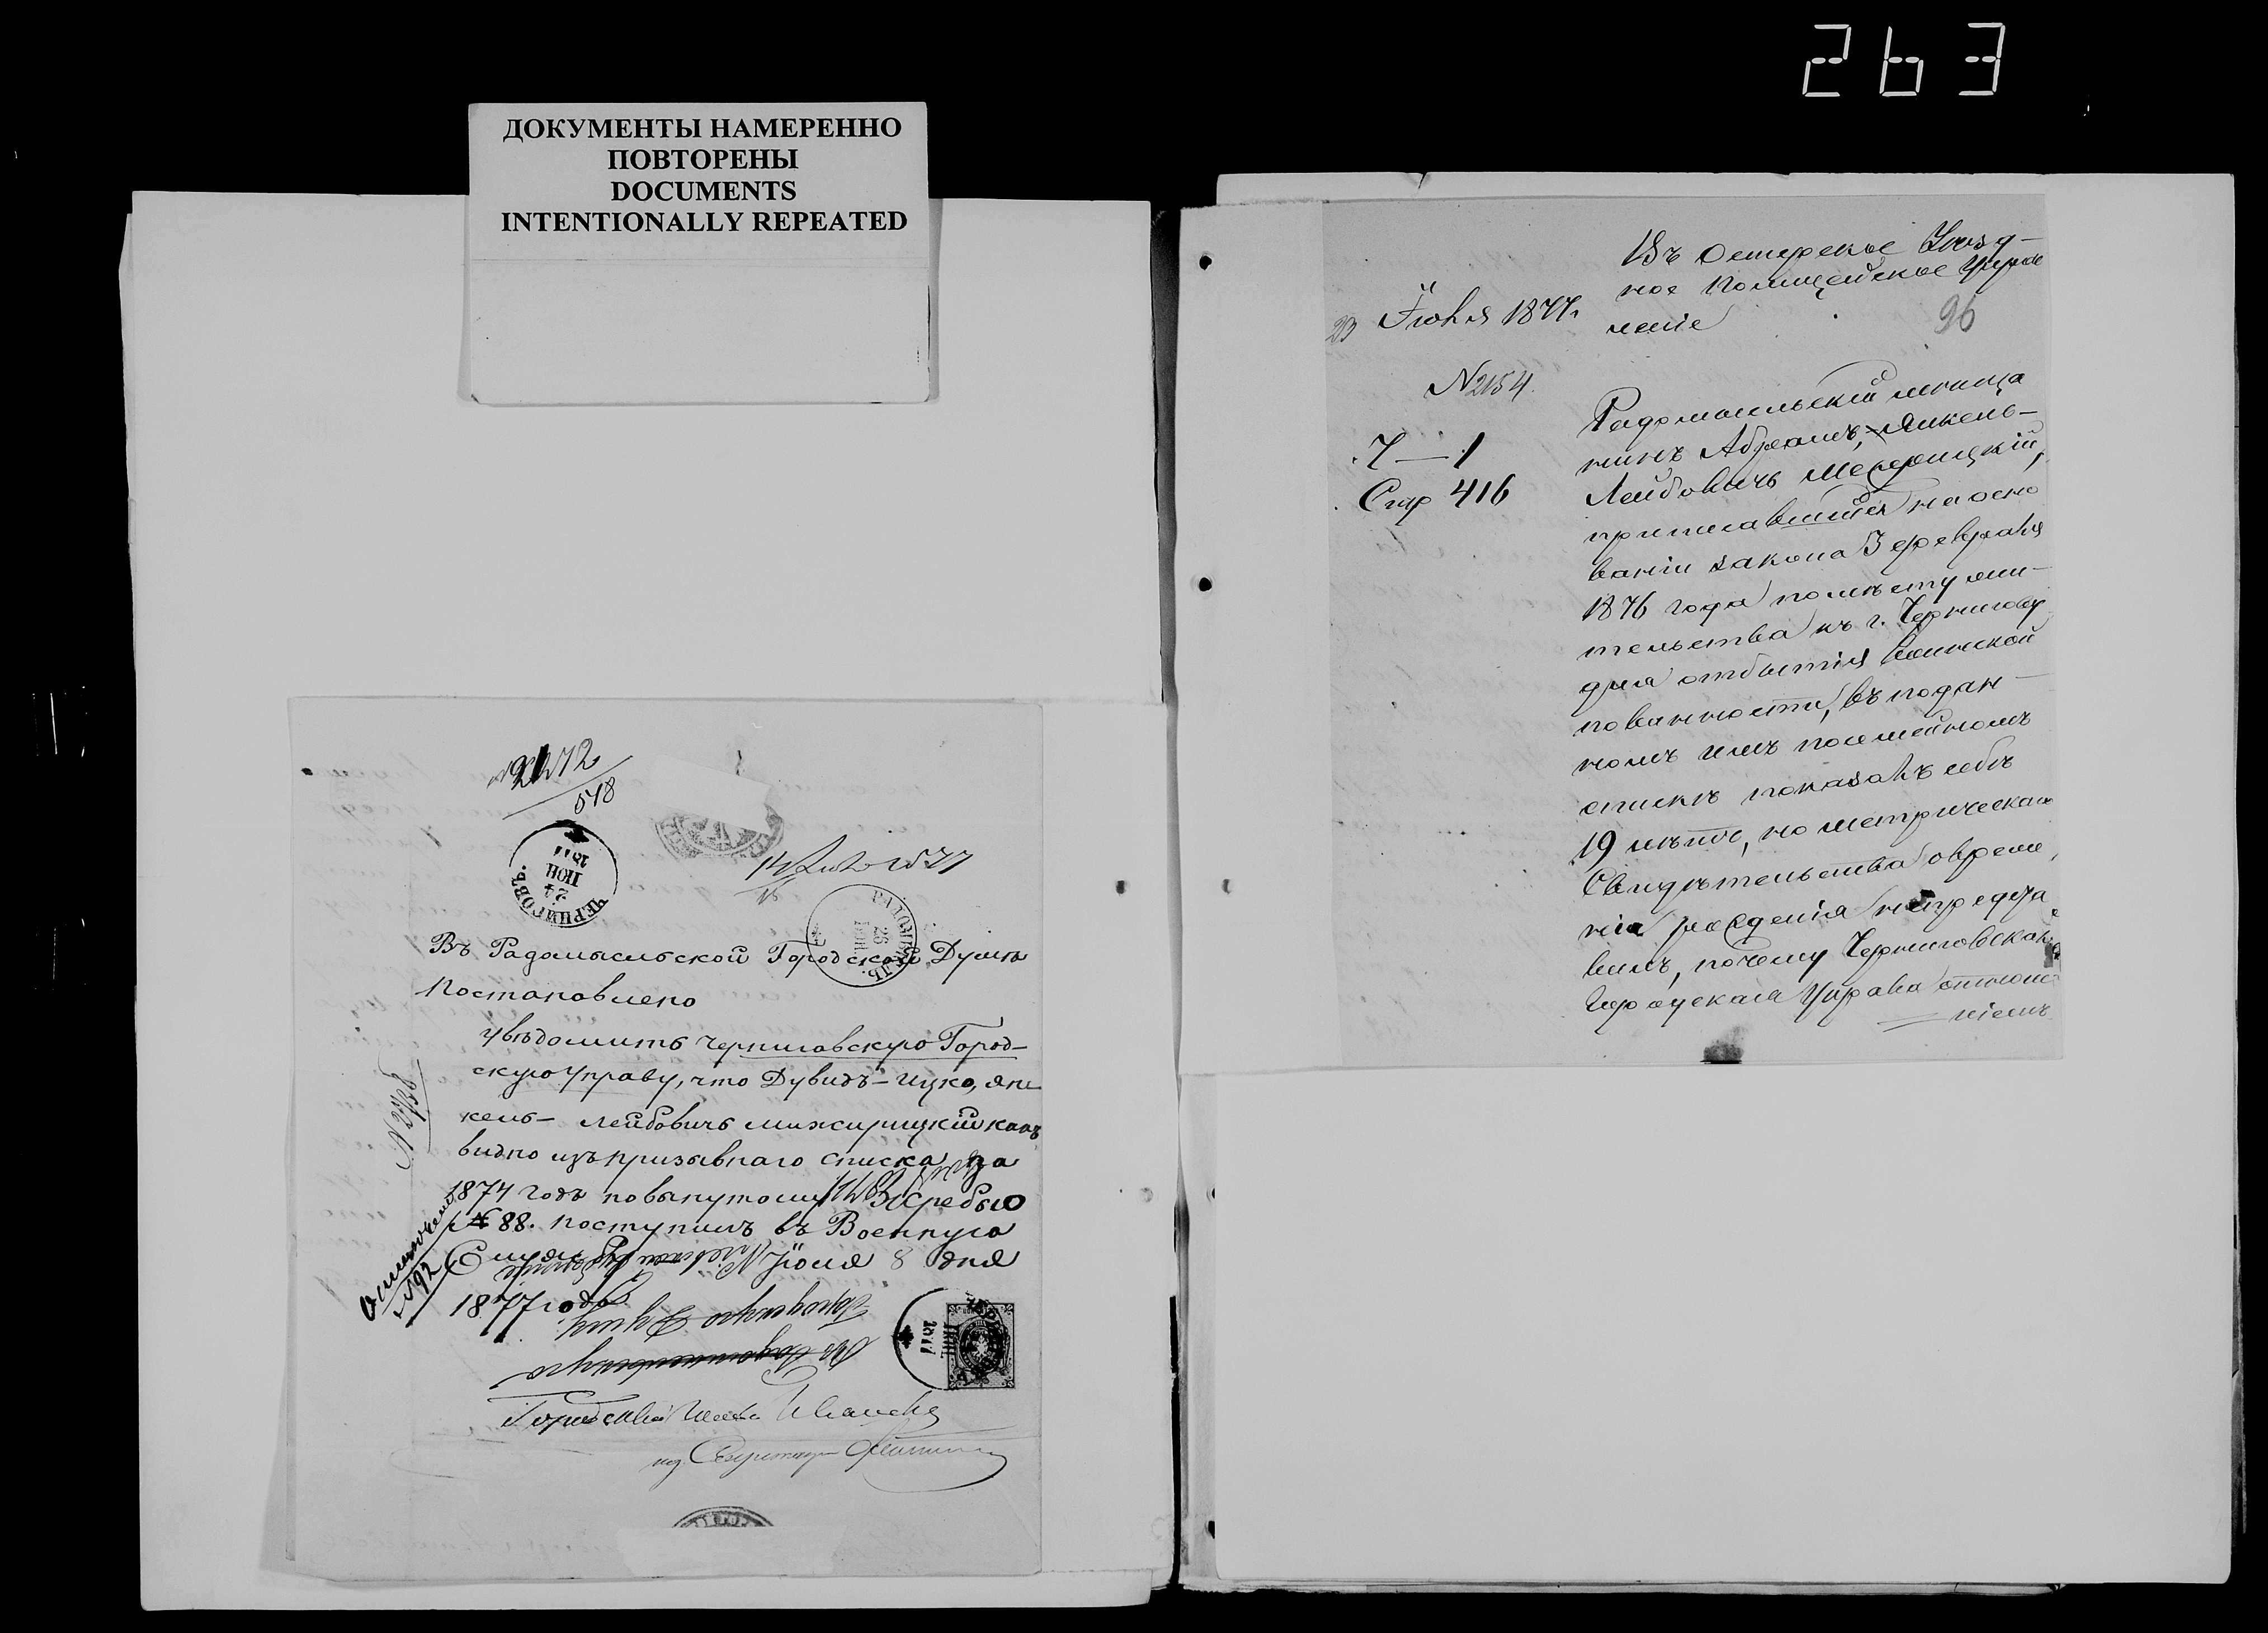 263
ДОКУМЕНТЫ НАМЕРЕННО
ПОВТОРЕНЫ
DOCUMENTS
INTENTIONALLY REPEATED
548
ЧЕРНИГОВЪ.
24
ІЮН
1877
РАДОМЫСЛЬ.
26
ІЮН.
Въ Радомысльской Городской Думѣ
Постановлено
увѣдомить Черниговскую Город-
скую Управу, что Дувидъ-Ицко, Ян-
кель-Лейбовичъ Межирицкій какъ
видно изъ призывнаго списка за
1874 годъ по вынутому имъ жребью
№ 88. поступилъ въ Военную
Службу Іюля 8 дня
1877 года
Въ Радомысльскую
Городскую Думу
№ 92
Городской Голова
Секретарь
23 Іюня 1877г.
№ 2154
Ч — 1
Стр 416
Въ Остерское Уѣзд-
ное Полицейское Управ
леніе
96
Радомысльскій мѣща
нинъ Абрамъ, Янкель-
Лейбовичъ Межерицкій,
приписавшійся на осно
ваніи закона 3 февраля
1876 года по мѣсту жи-
тельства къ г. Чернигову
для отбытія воинской
повинности, въ подан-
номъ имъ посемейномъ
спискѣ показалъ себѣ
19 лѣтъ, но метрическаго
Свидѣтельства о време
ни рожденія не предъя
вилъ, почему Черниговская
Городская Управа отноше
ніемъ